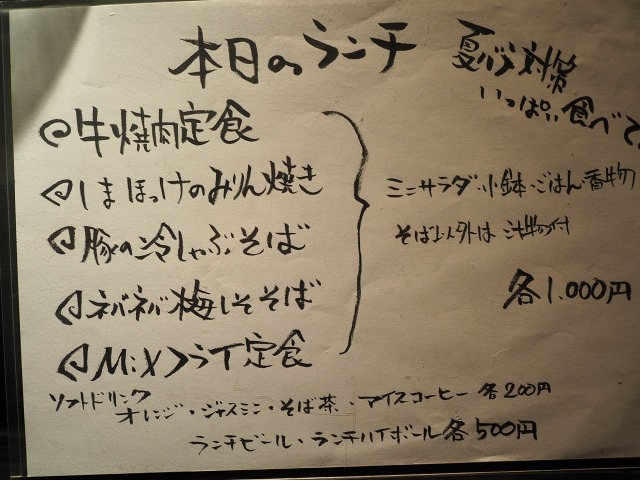 本日のランチ
夏バテ対策
いっぱい食べて
牛焼肉定食
しまほっけのみりん焼き
豚の冷しゃぶそば
ネバネバ梅しそそば
Mixフライ定食
ミニサラダ・小鉢・ごはん・香物
そば以外は 汁物付
各1.000円
ソフトドリンク
オレンジ・ジャスミン・そば茶・アイスコーヒー 各200円
ランチビール・ランチハイボール各500円